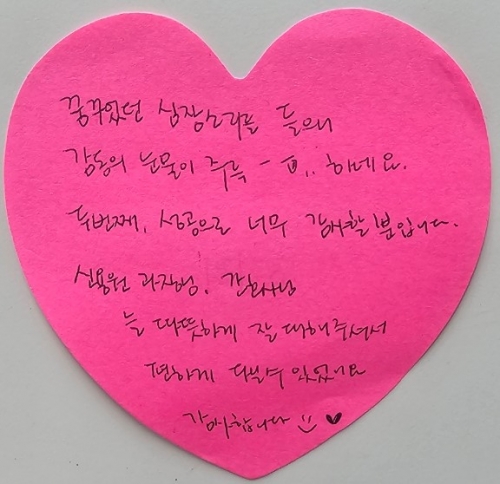 꿈꾸었던 심장소리를 들으니
감동의 눈물이 주륵 - ㅠ.. 하네요.
두번째, 성공으로 너무 감사할 뿐입니다.
신용원 과장님, 간호사님
늘 따뜻하게 잘 대해주셔서
편하게 다닐수 있었어요
감사합니다